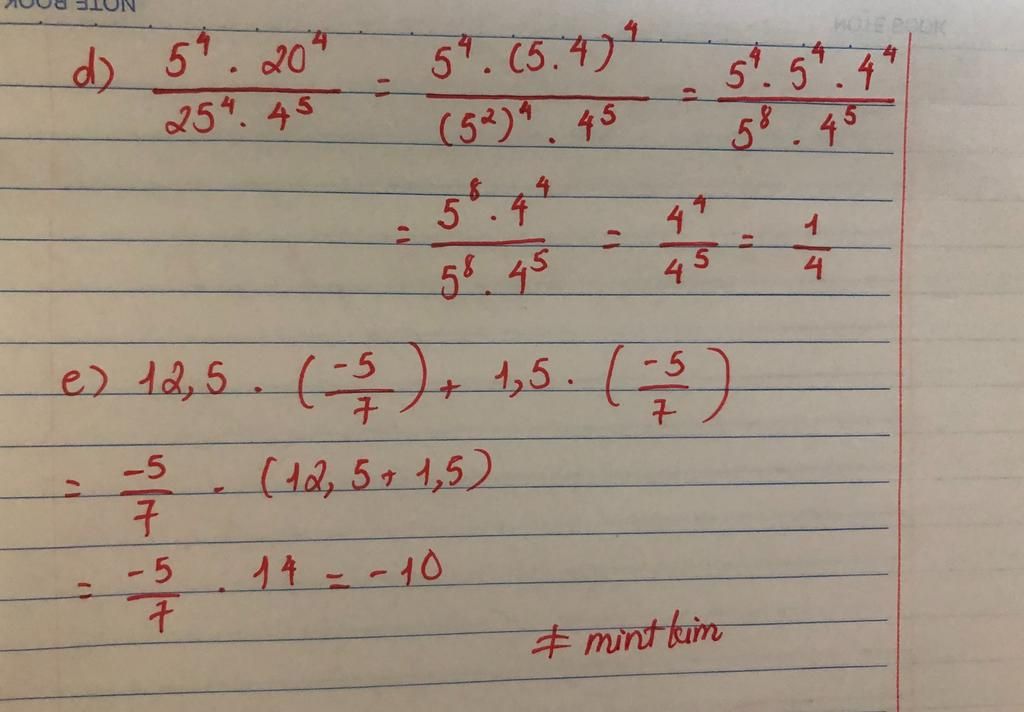 NOTE BOOK
NOTE BOOK
d) \frac{5^4 . 20^4}{25^4 . 4^5} = \frac{5^4 . (5.4)^4}{(5^2)^4 . 4^5} = \frac{5^4 . 5^4 . 4^4}{5^8 . 4^5}
= \frac{5^8 . 4^4}{5^8 . 4^5} = \frac{4^4}{4^5} = \frac{1}{4}
e) 12,5 . (\frac{-5}{7}) + 1,5 . (\frac{-5}{7})
= \frac{-5}{7} . (12,5 + 1,5)
= \frac{-5}{7} . 14 = -10
# mintkim